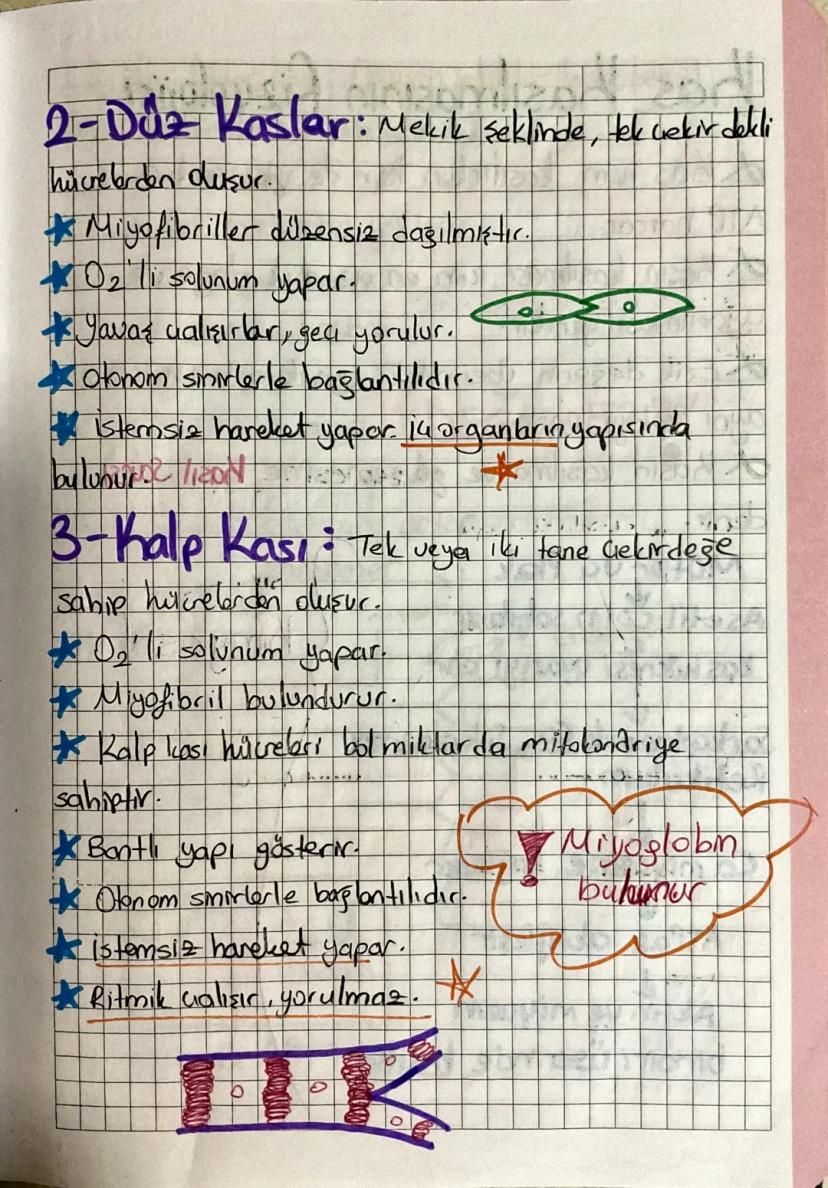 2-Düz Kaslar: Mekik şeklinde, tek çekirdekli
hücrelerden oluşur.
★ Miyofibriller düzensiz dağılmıştır.
★ O₂'li solunum yapar.
★ Yavaş çalışırlar, geç yorulur.
★ Otonom sinirlerle bağlantılıdır.
★ İstemsiz hareket yapar. İç organların yapısında
bulunur.
3-Kalp Kası: Tek veya iki tane çekirdeğe
sahip hücrelerden oluşur.
★ O₂'li solunum yapar.
★ Miyofibril bulundurur.
★ Kalp kası hücreleri bol miktarda mitokondriye
sahiptir.
! Miyoglobin
bulunur
★ Bantlı yapı gösterir.
★ Otonom sinirlerle bağlantılıdır.
★ İstemsiz hareket yapar.
★ Ritmik çalışır, yorulmaz.